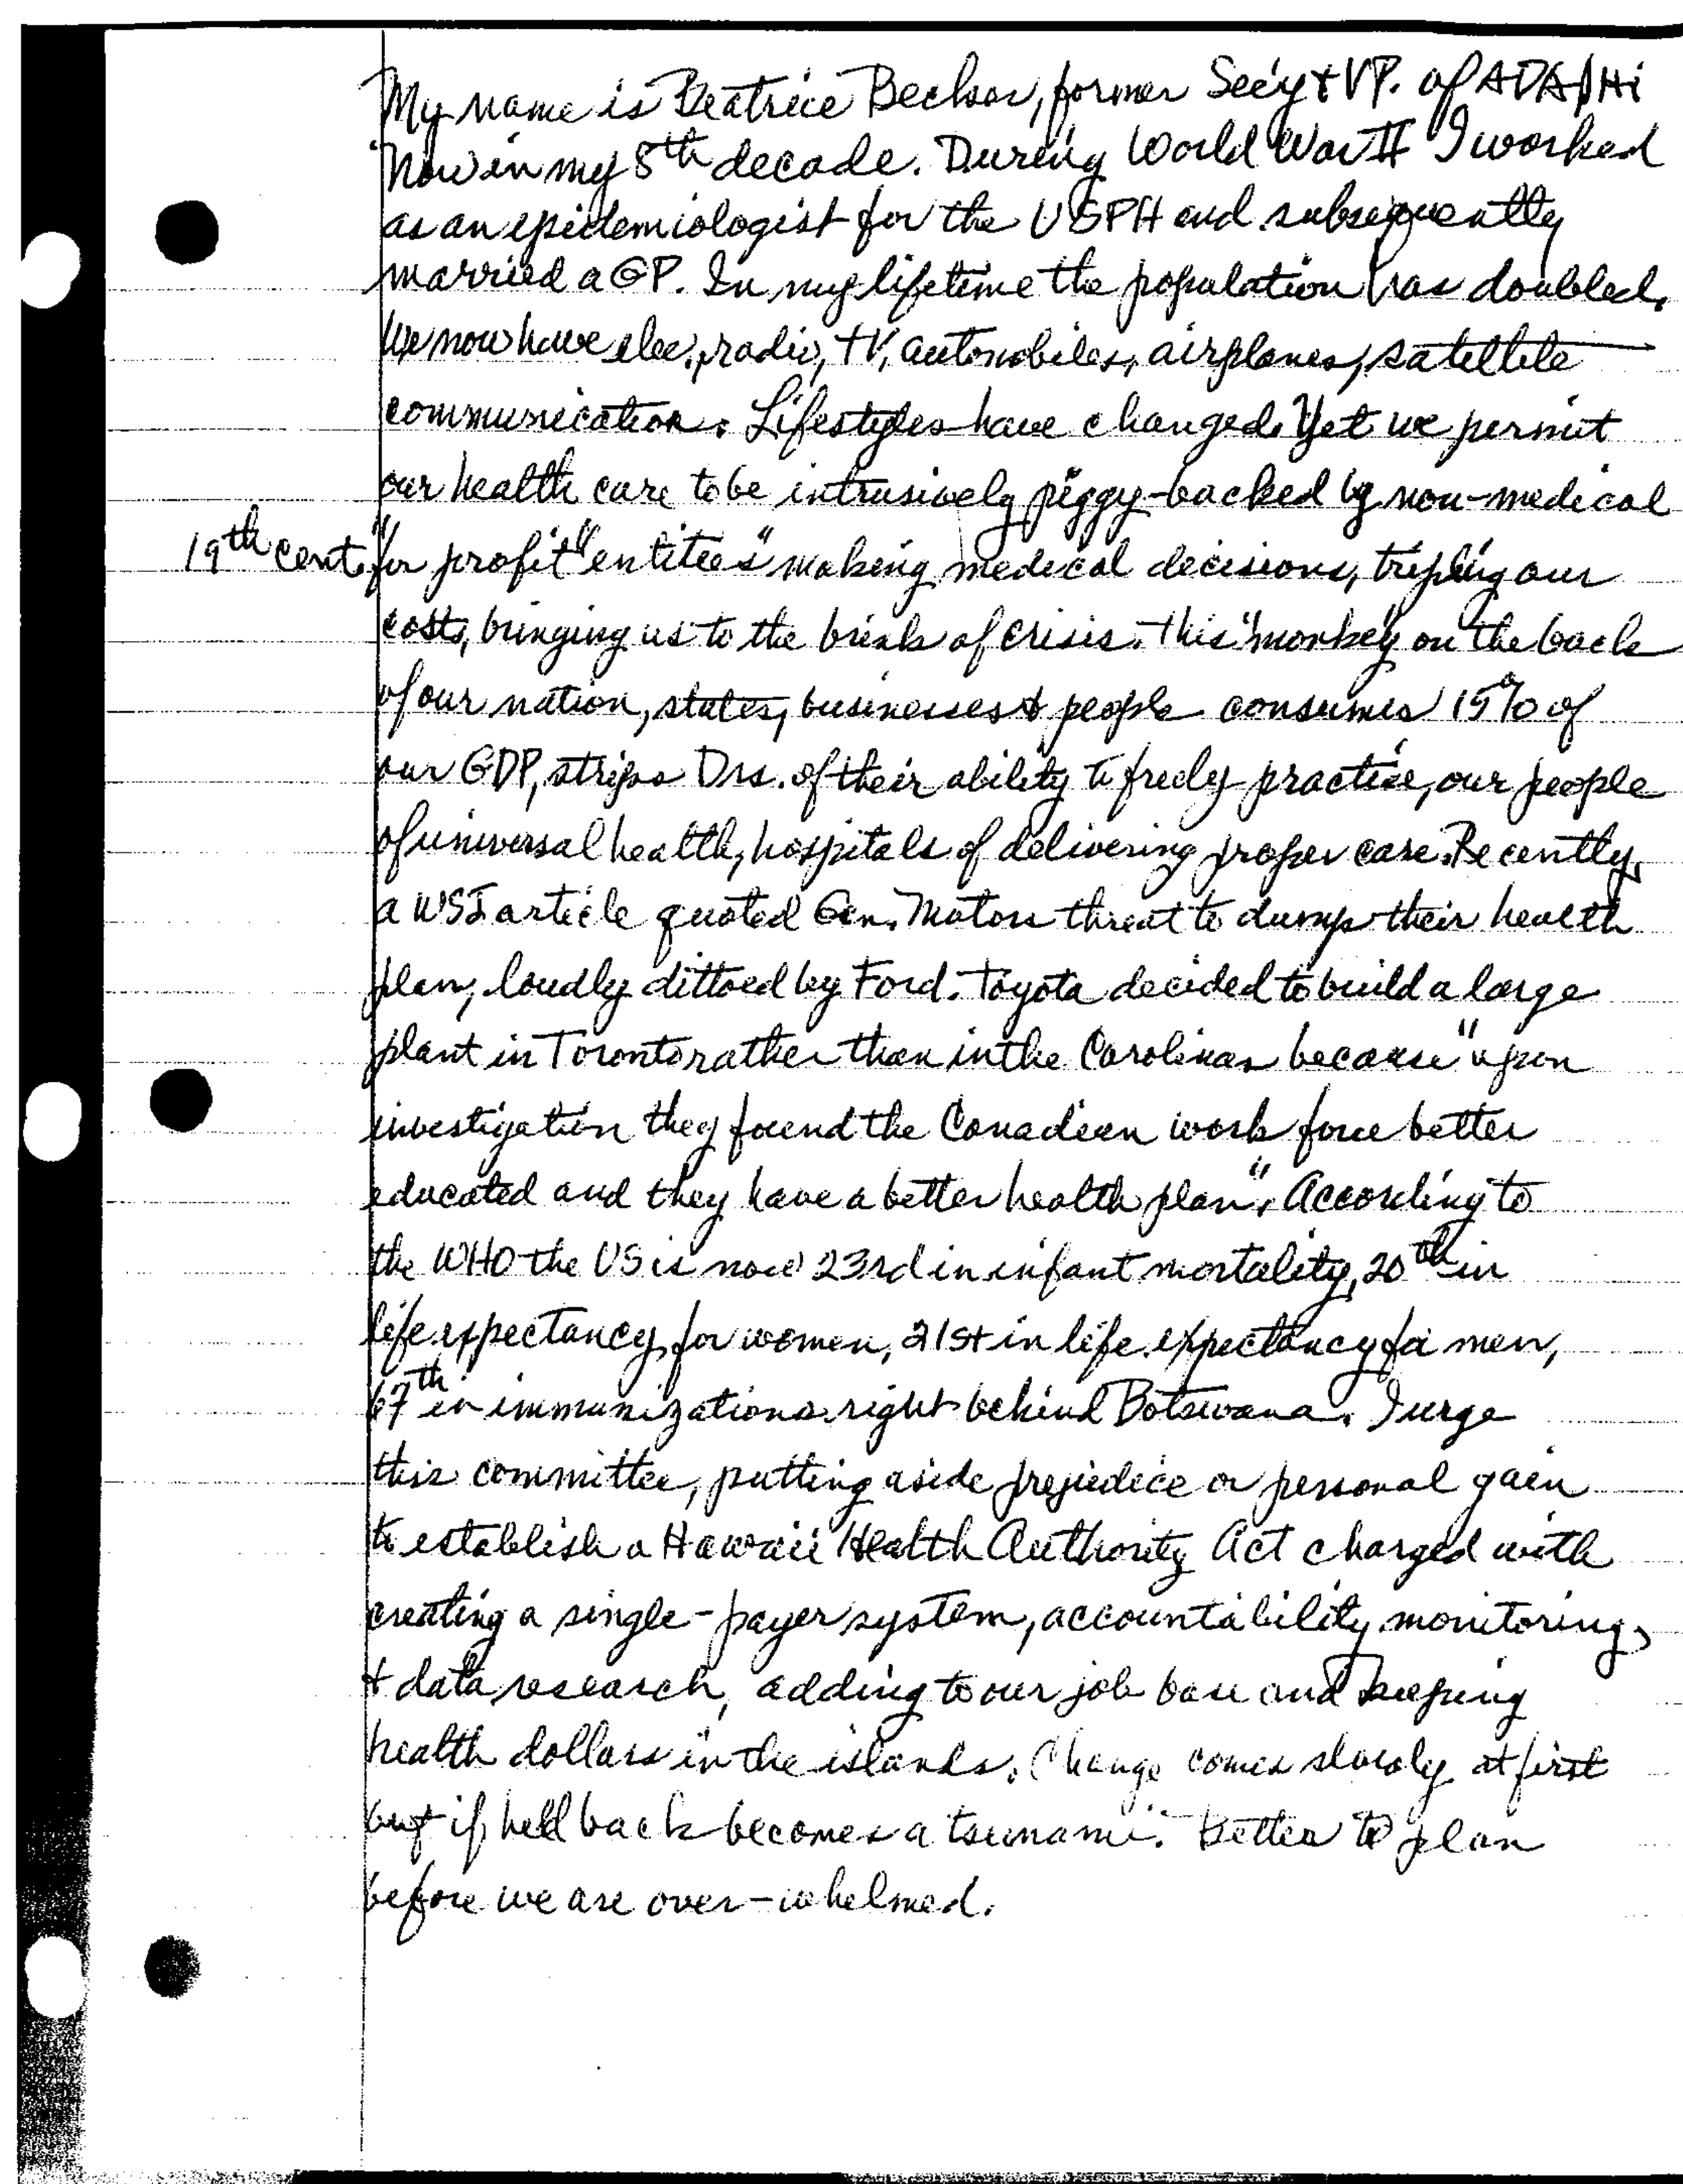 My name is Beatrice , former Sec'y & VP. of ADA/Hi
Now in my 8th decade. During World War II I worked
as an epidemiologist for the USPH and subsequently
married a GP. In my lifetime the population has doubled.
We now have elec., radio, TV, automobiles, airplanes, satellite
communication. Lifestyles have changed. Yet we permit
our health care to be intrusively piggy-backed by non-medical
19th cent. "for profit" entities" making medical decisions, tripling our
costs, bringing us to the brink of crisis. This "monkey on the back
of our nation, states, businesses & people consumes 15% of
our GDP, strips Drs. of their ability to freely practice, our people
of universal health, hospitals of delivering proper care. Recently,
a WSJ article quoted Gen. Motors threat to dump their health
plan, loudly dittoed by Ford. Toyota decided to build a large
plant in Toronto rather than in the Carolinas because "upon
investigation they found the Canadian work force better
educated and they have a better health plan". According to
the WHO the US is now 23rd in infant mortality, 20th in
life expectancy for women, 21st in life expectancy for men,
67th in immunizations right behind Botswana. I urge
this committee, putting aside prejudice or personal gain
to establish a Hawaii Health Authority Act charged with
creating a single-payer system, accountability monitoring,
& data research, adding to our job base and keeping
health dollars in the islands. Change comes slowly at first
but if held back becomes a tsunami. Better to plan
before we are over-whelmed.